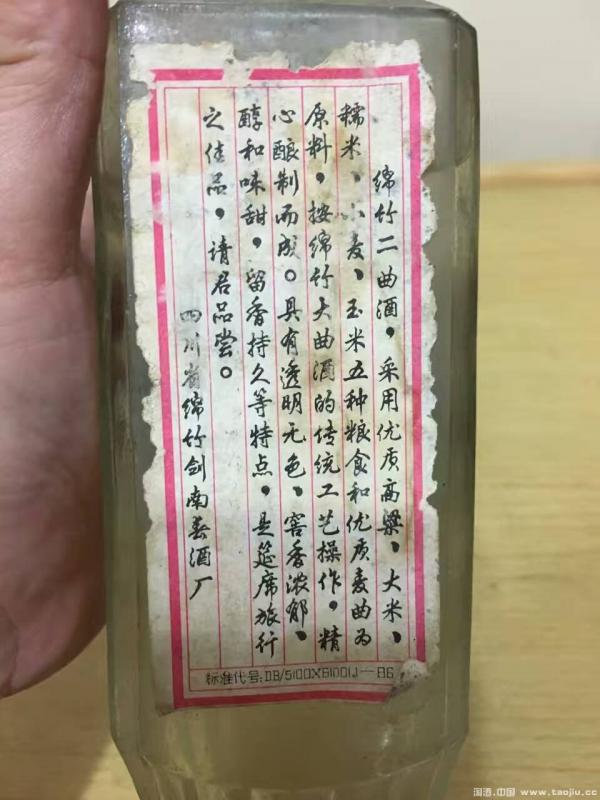 绵竹二曲酒，采用优质高粱、大米、
糯米、小麦、玉米五种粮食和优质麦曲为
原料，按绵竹大曲酒的传统工艺操作，精
心酿制而成。具有透明无色、窖香浓郁、
醇和味甜，留香持久等特点，是筵席旅行
之佳品，请君品尝。
四川省绵竹剑南春酒厂
标准代号：DB/5100XB1001J—86
淘酒.中国 www.taojiu.cc